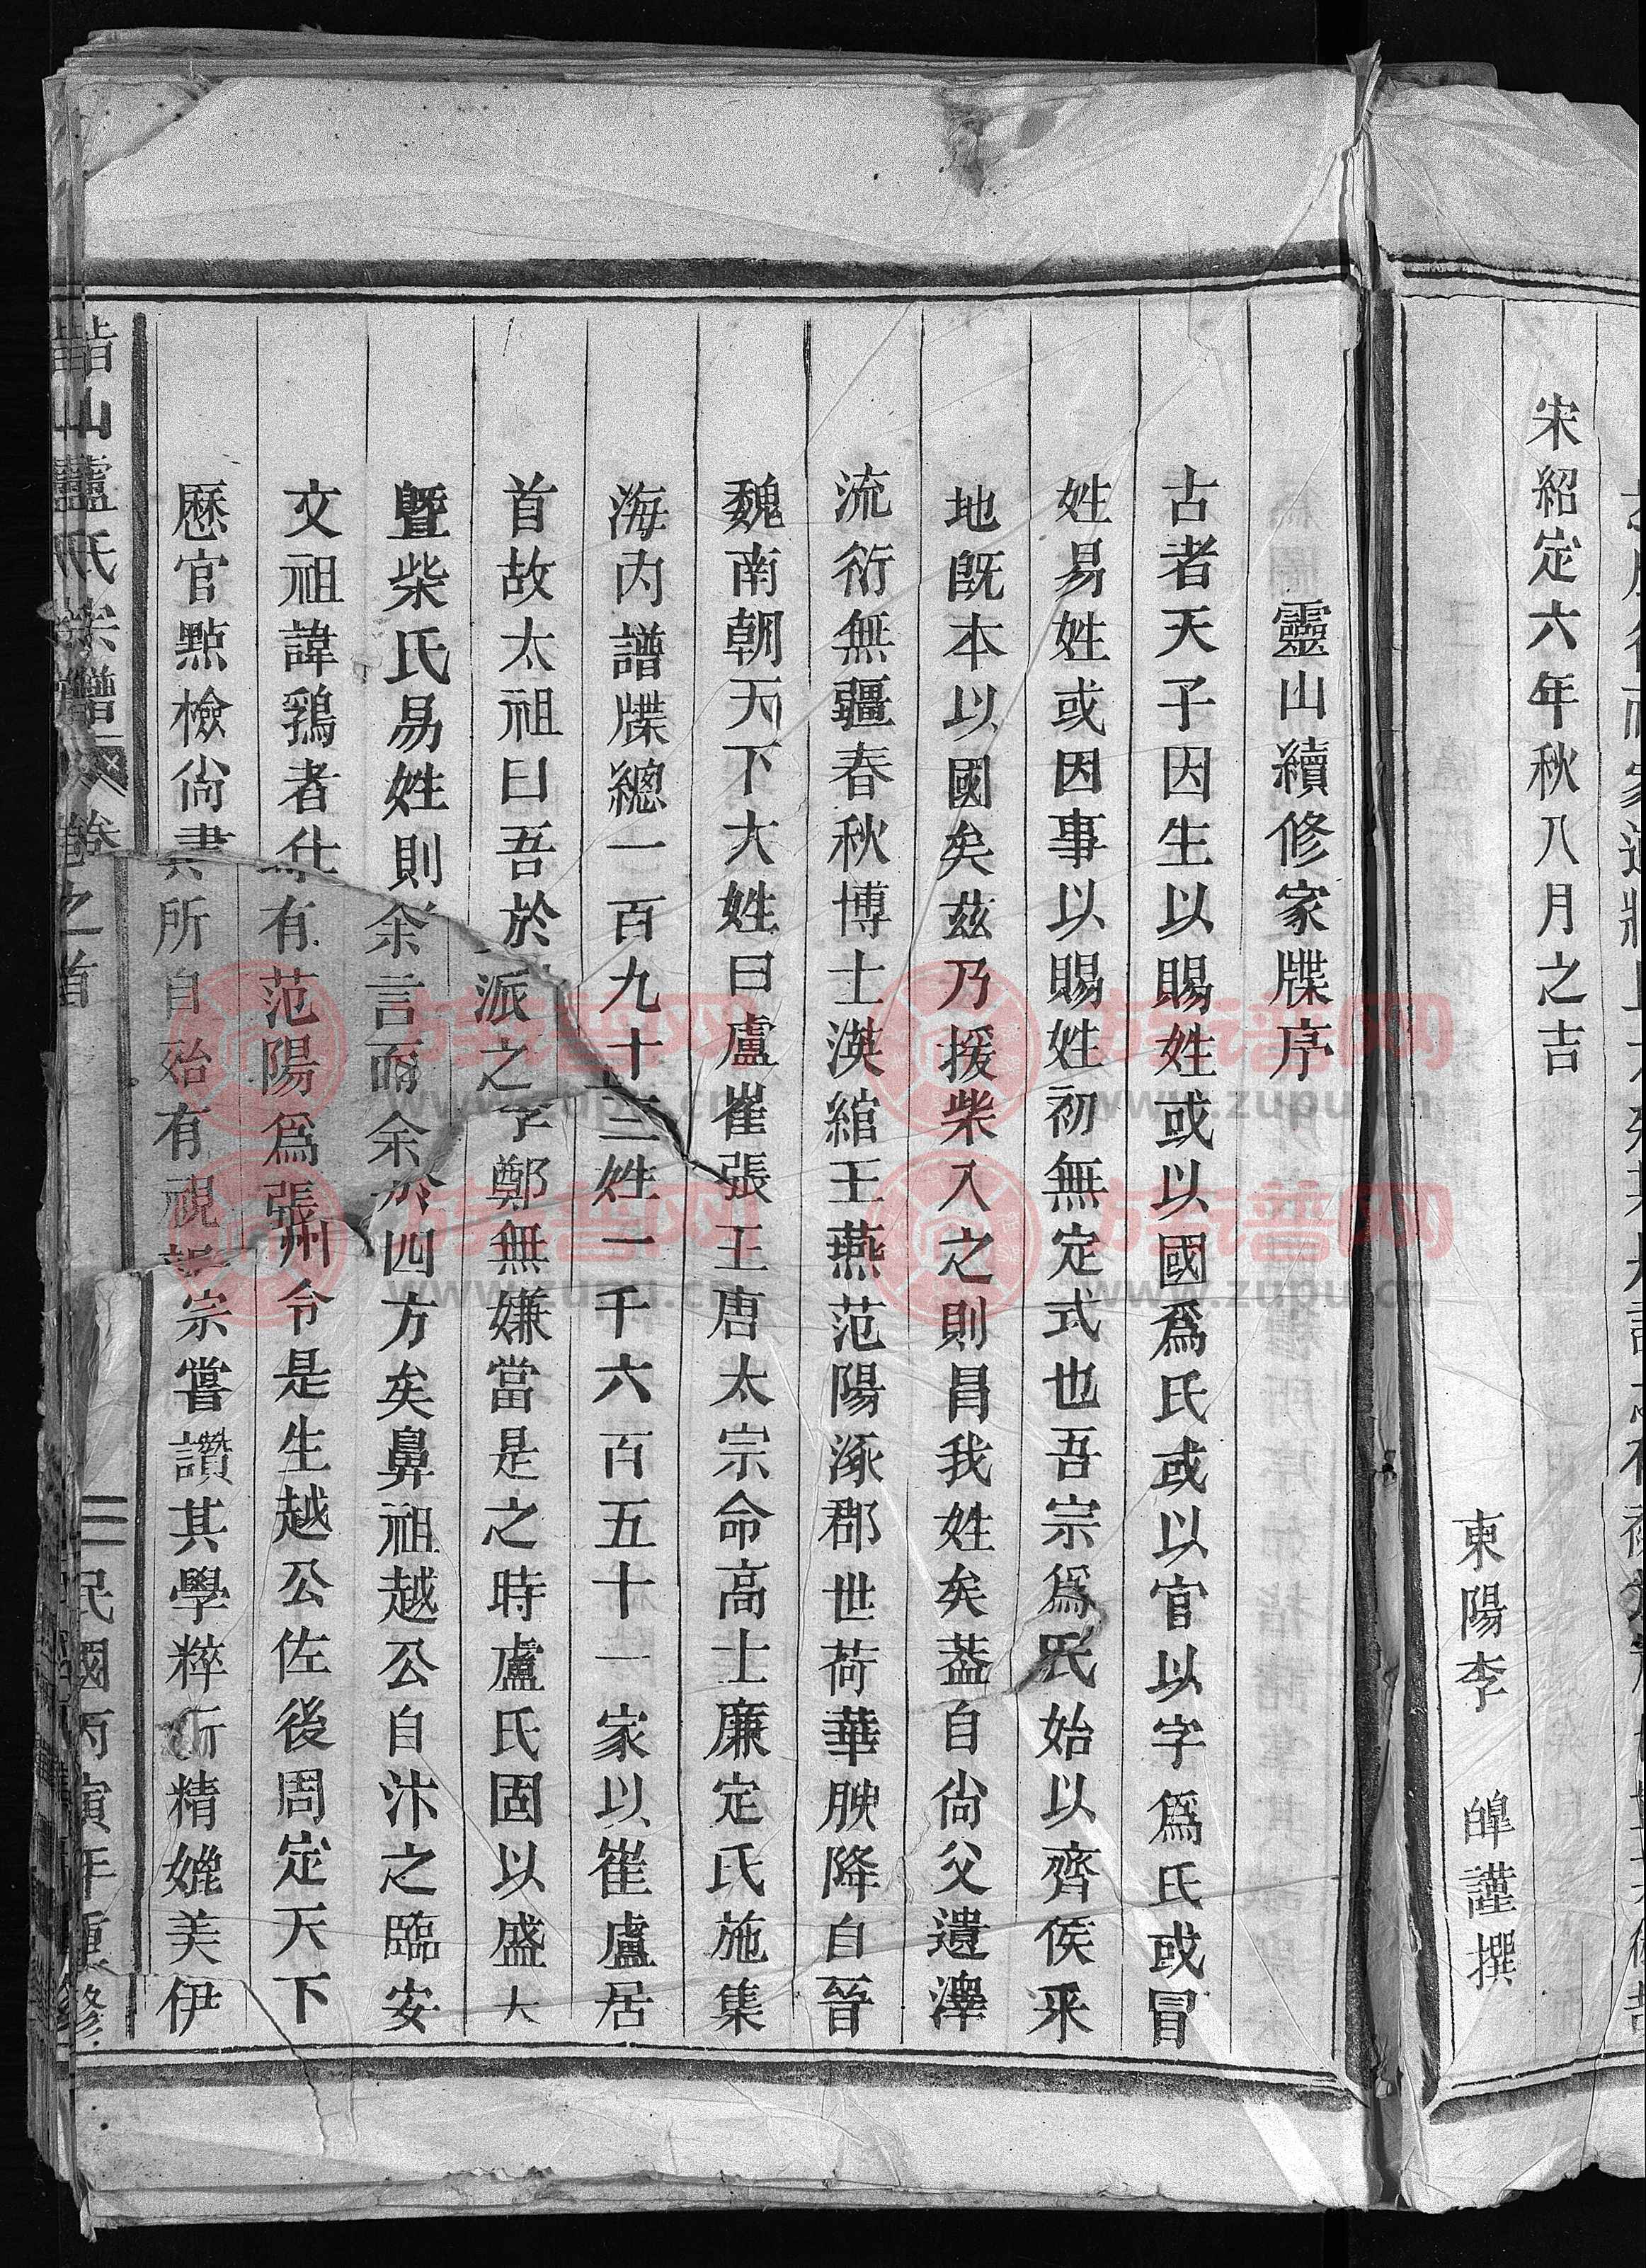 宋紹定六年秋八月之吉
東陽李　皥謹撰
靈山續修家牒序
古者天子因生以賜姓或以國爲氏或以官以字爲氏或冒
姓易姓或因事以賜姓初無定式也吾宗爲氏始以齊侯釆
地旣本以國矣茲乃援柴入之則冒我姓矣葢自尙父遺澤
流衍無疆春秋博士漢綰王燕范陽涿郡世荷華腴降自晉
魏南朝天下大姓曰盧崔張王唐太宗命高士廉定氏施集
海內譜牒總一百九十三姓一千六百五十一家以崔盧居
首故太祖曰吾於派之子鄭無嫌當是之時盧氏固以盛大
曁柴氏易姓則余言而余於四方矣鼻祖越公自汴之臨安
文祖諱鶚者仕有范陽爲張州令是生越公佐後周定天下
歷官點檢尙書所自始有視宗嘗讚其學粹行精媲美伊
山盧氏宗譜 卷之首
二 民國丙寅年重修
族谱网
www.zupu.cn
族谱网
www.zupu.cn
族谱网
www.zupu.cn
族谱网
www.zupu.cn